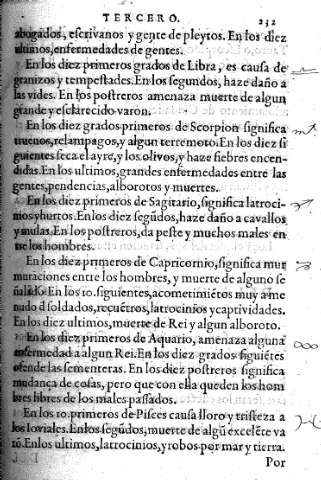 TERCERO. 232
abogados, escrivanos y gente de pleytos. En los diez
ultimos, enfermedades de gentes.
En los diez primeros grados de Libra, es causa de
granizos y tempestades. En los segundos, haze daño a
las vides. En los postreros amenaza muerte de algun
grande y esclarecido varon.
En los diez grados primeros de Scorpion significa
truenos, relampagos, y algun terremoto. En los diez si
guientes seca el ayre, y los olivos, y haze fiebres encen-
didas. En los ultimos, grandes enfermedades entre las
gentes, pendencias, alborotos y muertes.
En los diez primeros de Sagitario, significa latroci-
nios y hurtos. En los diez segũdos, haze daño a cavallos
y mulas. En los postreros, da peste y muchos males en
tre los hombres.
En los diez primeros de Capricornio, significa mur
muraciones entre los hombres, y muerte de alguno se
ñalado. En los 10. siguientes, acometimiẽtos muy a me
nudo ď soldados, recuẽtros, latrocinios y captividades.
En los diez ultimos, muerte de Rey y algun alboroto.
En los diez primeros de Aquario, amenaza alguna
enfermedad a algun Rei. En los diez grados siguiẽtes
ofende las sementeras. En los diez postreros significa
mudança de cosas, pero que con ella queden los hom
bres libres de los males passados.
En los 10. primeros de Pisces causa lloro y tristeza a
los Ioviales. En los segũdos, muerte de algũ excelẽte va
rõ. En los ultimos, latrocinios, y robos por mar y tierra.
Por